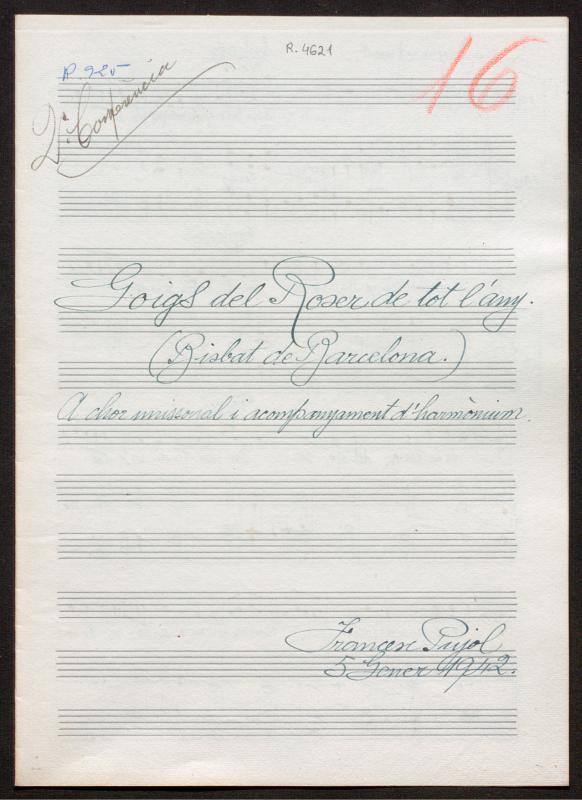 R. 4621
16
R. 925
2ª Conferència
Goigs del Roser de tot l'any.
(Bisbat de Barcelona.)
A chor unissonal i acompanyament d'harmònium.
Francesc Pujol
5 Gener 1942.